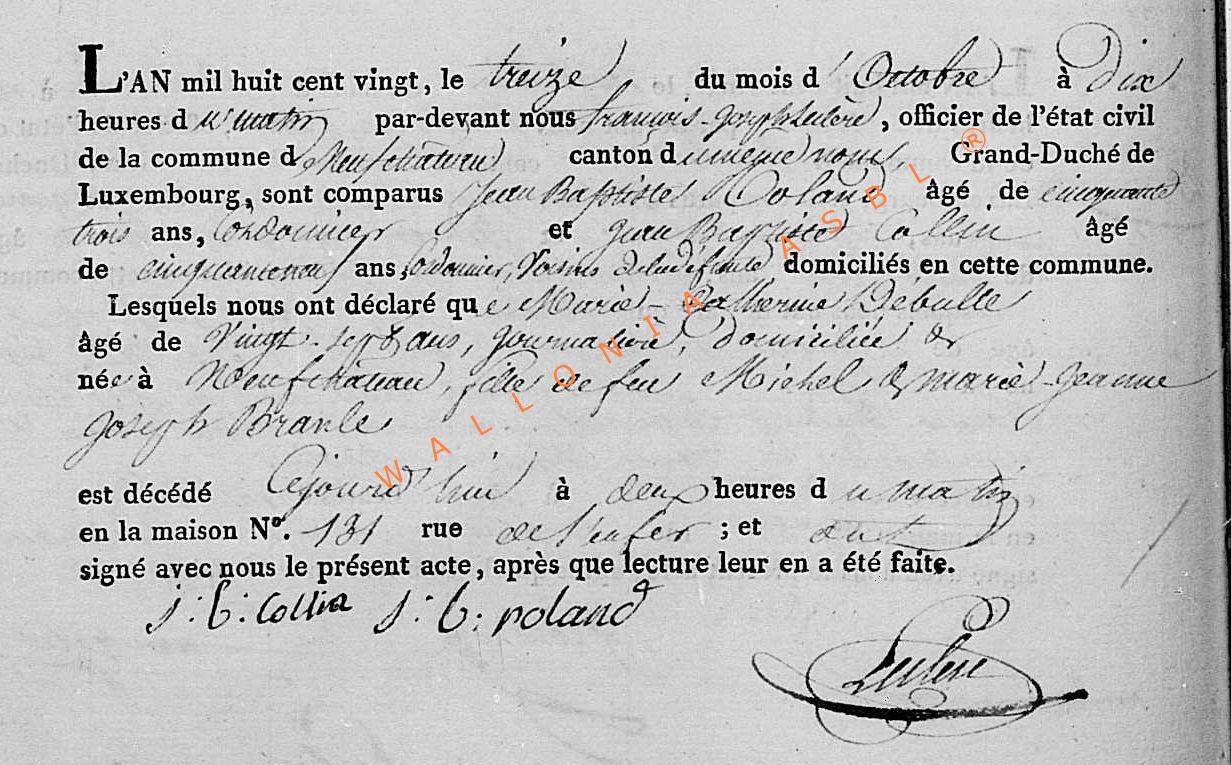 L'AN mil huit cent vingt, le treize du mois d'Octobre à dix
heures du matin par-devant nous françois-Joseph Leclère, officier de l'état civil
de la commune de Neufchateau canton du meme nom, Grand-Duché de
Luxembourg, sont comparus Jean Baptiste Roland âgé de cinquante
trois ans, Cordonnier et Jean Baptiste Collin âgé
de ans, Cordonnier, Voisins de la defunte domiciliés en cette commune.
Lesquels nous ont déclaré que Marie-Catherine Debulle
âgé de Vingt-sept ans, journaliere, domiciliée &
née à Neufchateau, fille de feu Michel & marie-Jeanne
Joseph Branle
est décédé Cejourd'hui à deux heures du matin
en la maison N°. 131 rue de l'enfer ; et ont
signé avec nous le présent acte, après que lecture leur en a été faite.
j: b: collin j: b: roland
Leclere
WALLONIA ASBL ®